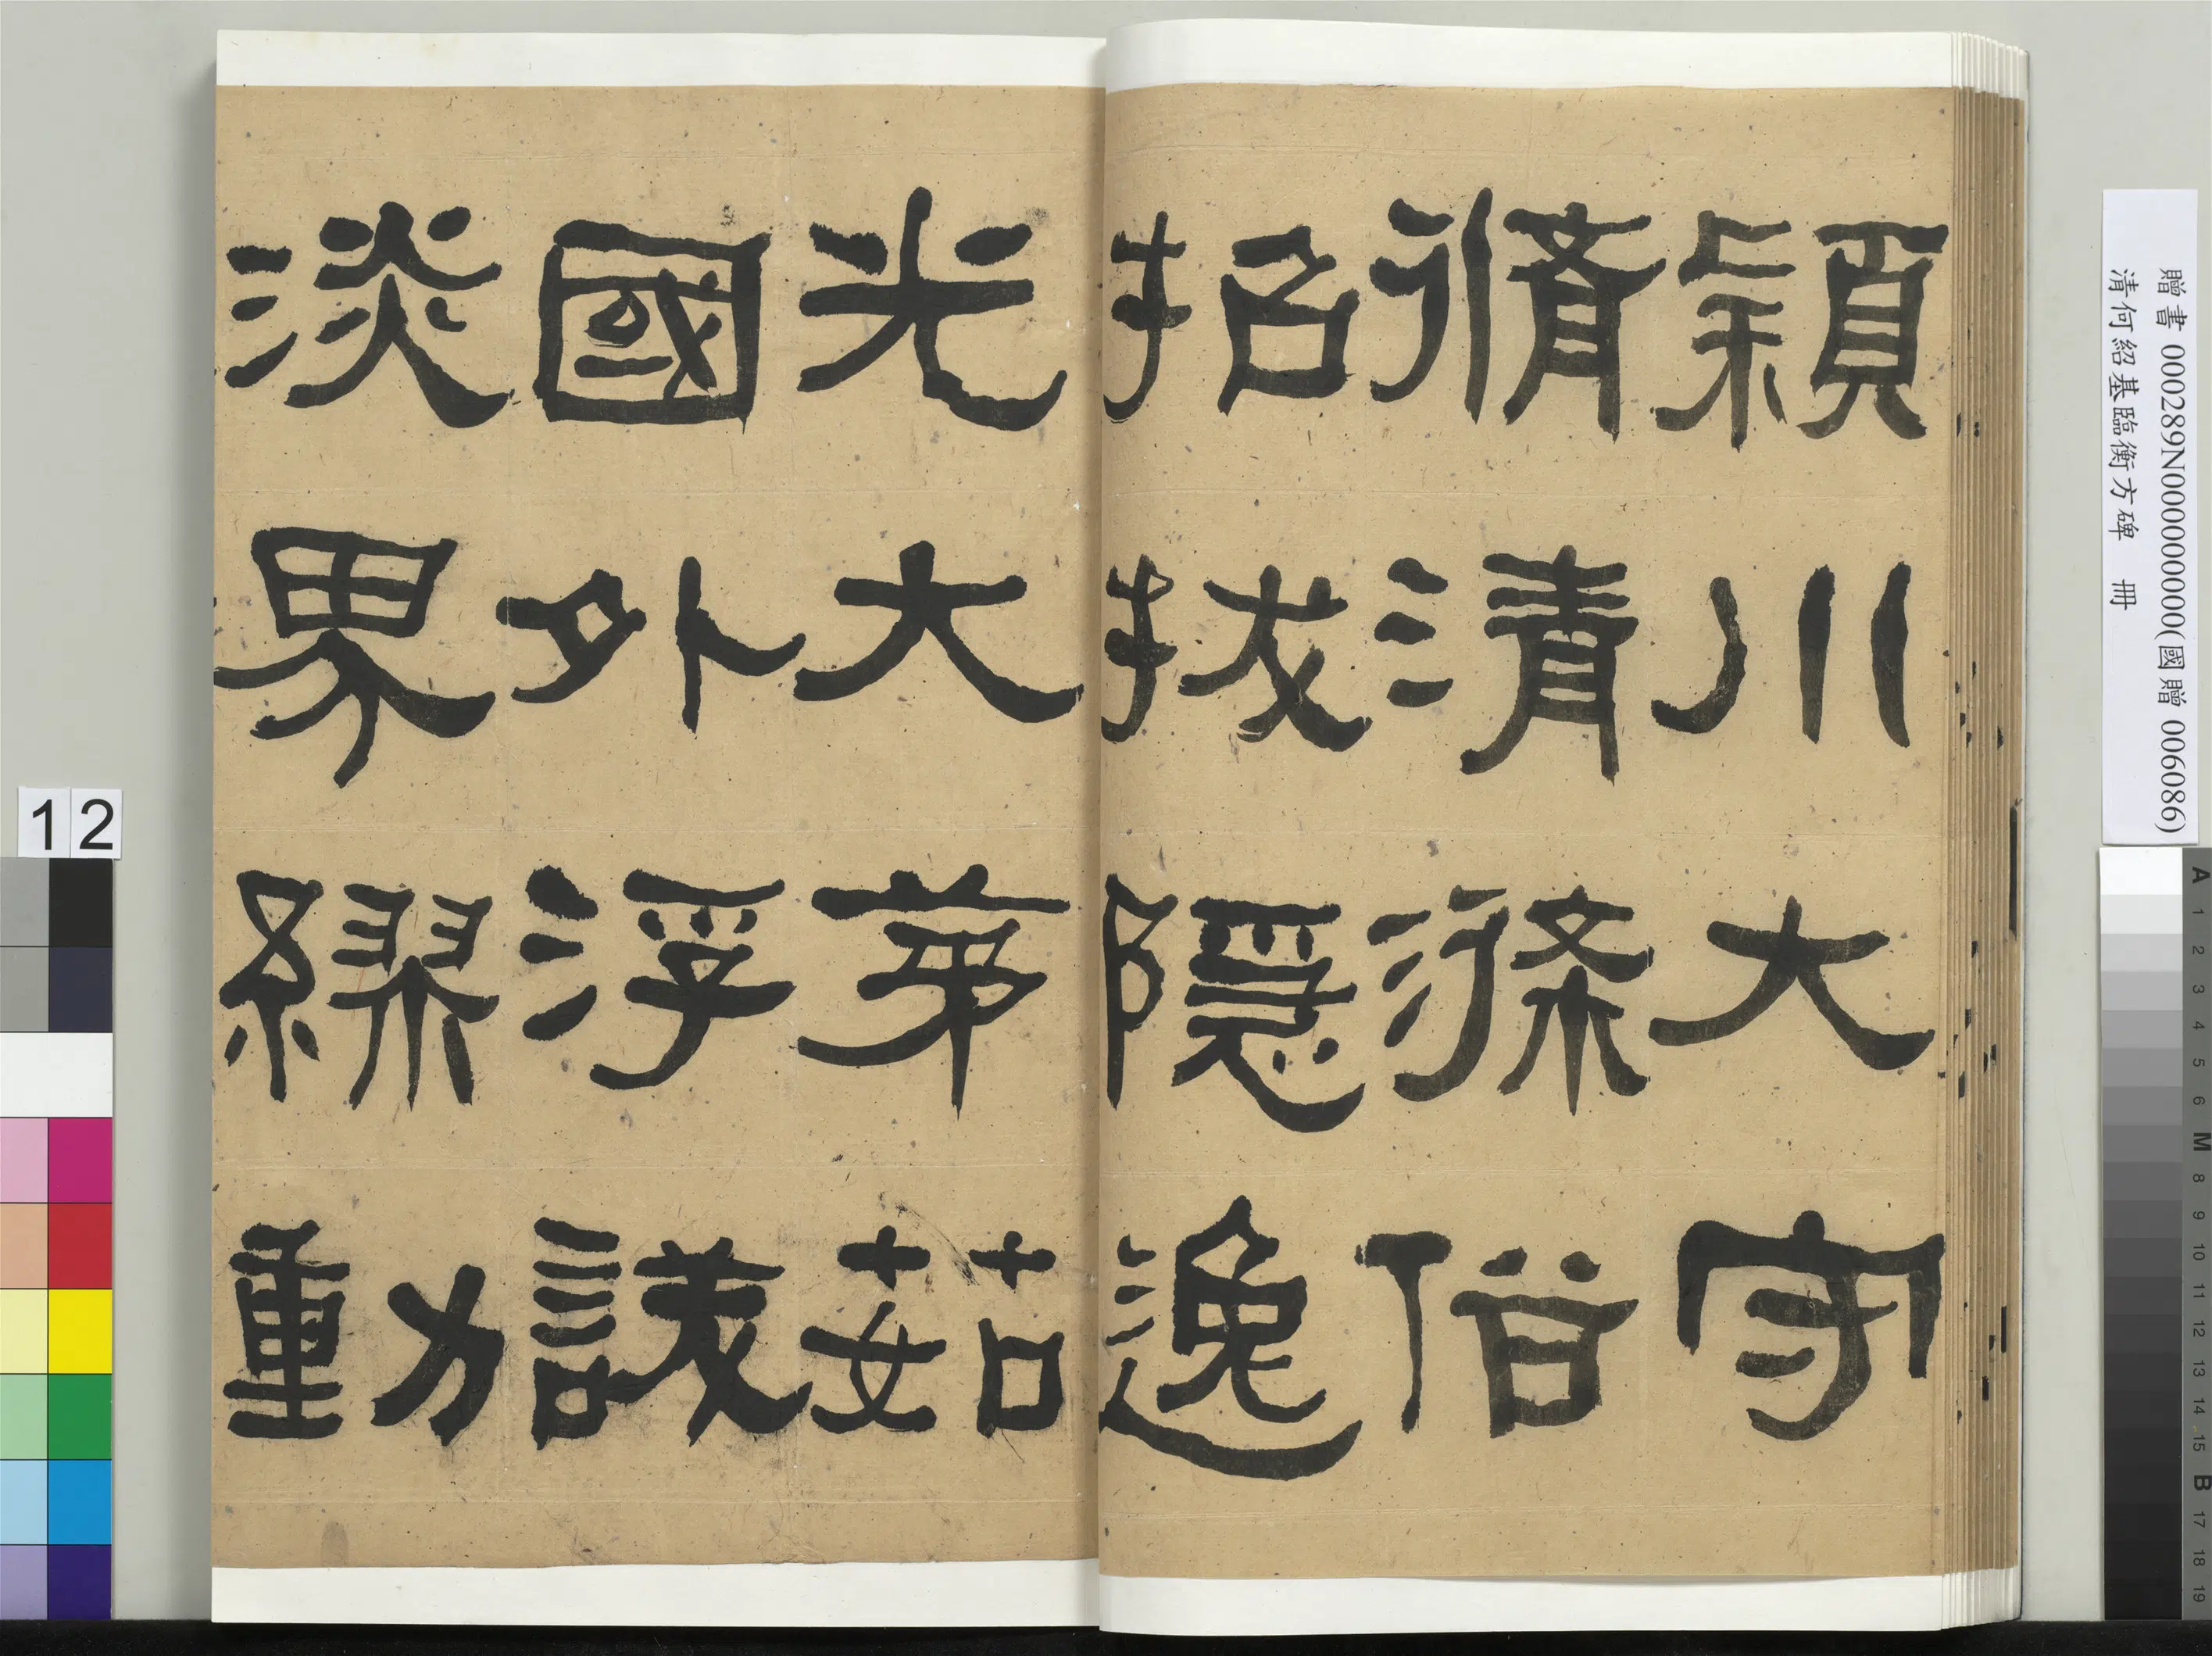 穎川大守
脩清滌俗
招拔隱逸
光大茅茹
國外浮
淡界繆動
贈書 000289N000000000(國贈 006086)
清何紹基臨衡方碑 冊
12
A 1 2 3 4 5 6 M 8 9 10 11 12 13 14 15 B 17 18 19